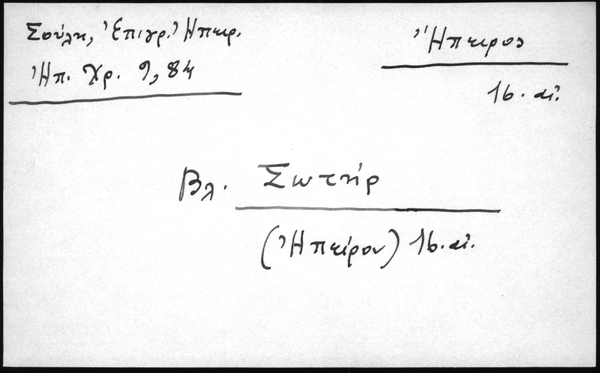 Σούλη, Ἐπιγρ. Ἠπειρ.
Ἠπ. Χρ. 9, 84
Ἤπειρος
16. αἰ.
Βλ. Σωτήρ
(Ἠπείρου) 16. αἰ.